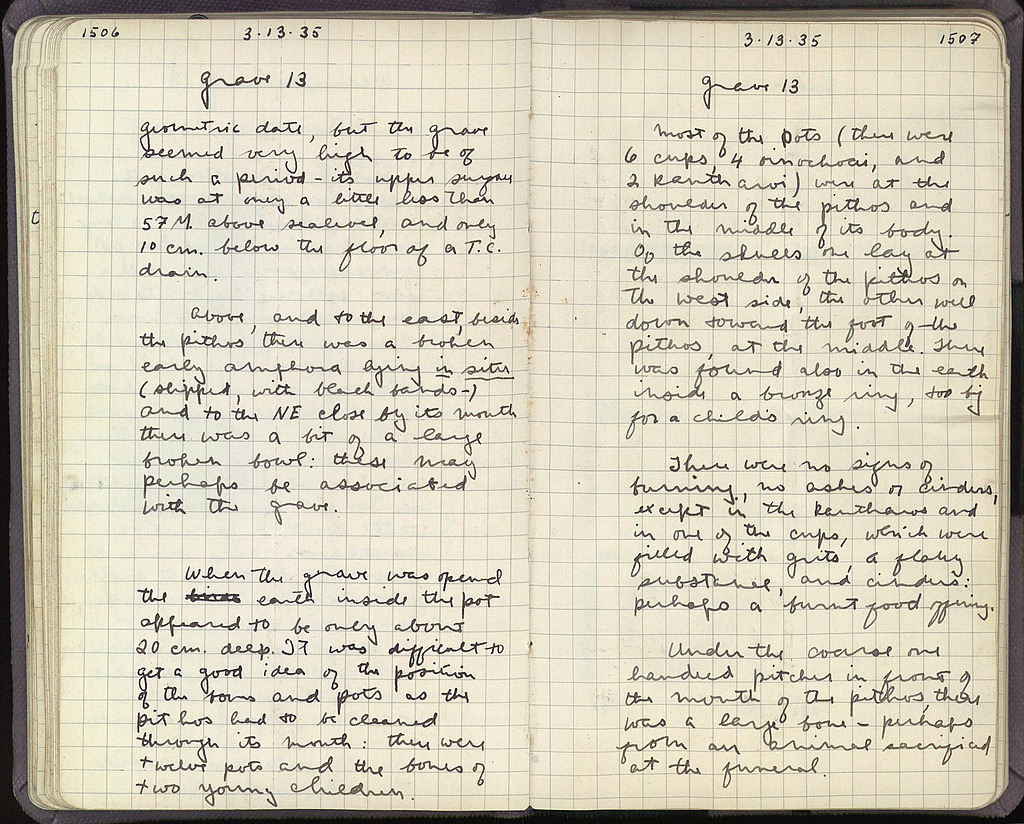 1506
3·13·35
grave 13
geometric date, but the grave
seemed very high to be of
such a period - its upper surface
was at only a little less than
57 M. above sealevel, and only
10 cm. below the floor of a T.C.
drain.
t
Above, and to the east, beside
the pithos there was a broken
early amphora lying in situ
(slipped, with black bands-)
and to the NE close by its mouth
there was a bit of a large
broken bowl: these may
perhaps be associated
with the grave.
When the grave was opened
the earth inside the pot
appeared to be only about
20 cm. deep. IT was difficult to
get a good idea of the position
of the bones and pots as the
pithos had to be cleaned
through its mouth: there were
twelve pots and the bones of
two young children.
3·13·35
1507
grave 13
Most of the pots (there were
6 cups, 4 oinochoai, and
2 kantharoi) were at the
shoulder of the pithos and
in the middle of its body.
Of the skulls one lay at
the shoulder of the pithos on
the west side, the other well
down toward the foot of the
pithos, at the middle. There
was found also in the earth
inside a bronze ring, too big
for a child's ring.
There were no signs of
burning, no ashes or cinders,
except in the kantharos and
in one of the cups, which were
filled with grits, a flaky
substance, and cinders:
perhaps a burnt food offering.
Under the coarse one
handled pitcher in front of
the mouth of the pithos, there
was a large bone - perhaps
from an animal sacrificed
at the funeral.